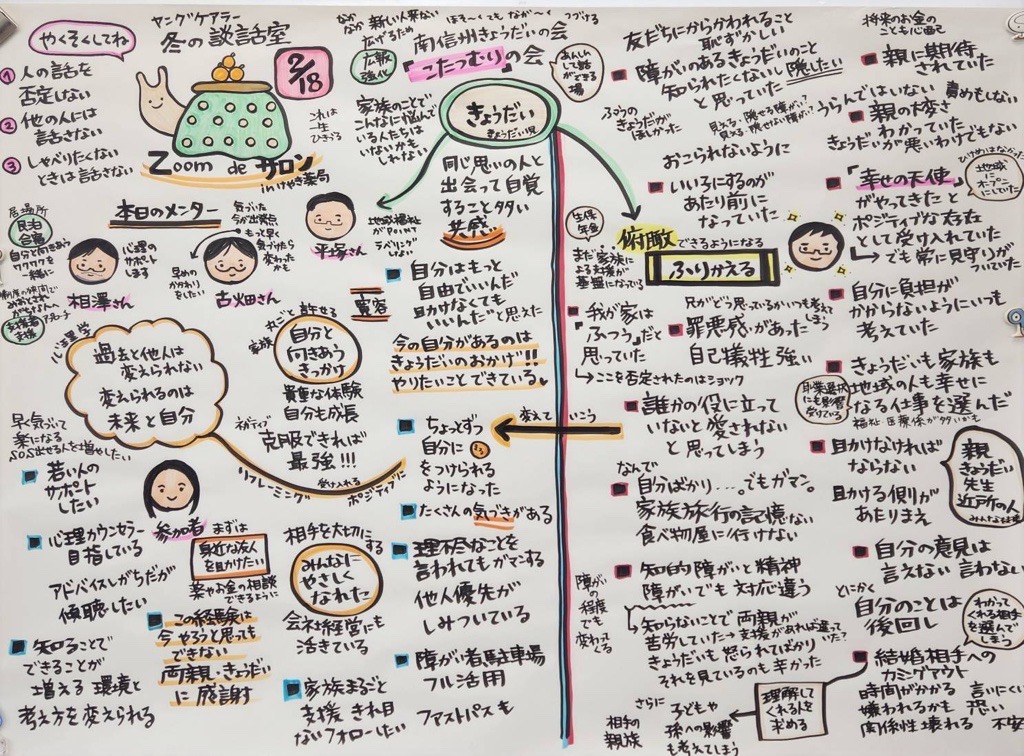 やくそくしてね
① 人の話を
否定しない
② 他の人には
話さない
③ しゃべりたくない
ときは話さない
ヤングケアラー
冬の談話室
2/18
Zoom de サロン
inけやき薬局
これは
一生
ひきずる
なかなか
新しい人来ない
ほそ〜くても なが〜く つづける
広げるため
広報
強化
南信州きょうだいの会
「こたつむり」の会
あんしん
して話が
できる
場
家族のことで
こんなに悩んで
いる人たちは
いないかも
しれない
きょうだい
きょうだい児
同じ思いの人と
出会って自覚
すること多い
共感
本日のメンター
居場所
自分と向きあう
ワクワクを
一緒に
相澤さん
心理の
サポート
します
気づいた
今が出発点
もっと早く
気づけたら
変わったかも
早めの
かかわり
をしたい
古畑さん
平塚さん
地域福祉が
POINT
ラベリング
しない
寛容
自分はもっと
自由でいいんだ
助けなくても
いいんだと思えた
今の自分があるのは
きょうだいのおかげ!!
やりたいことできている
心理学
過去と他人は
変えられない
変えられるのは
未来と自分
丸ごと許せる
家族
自分と
向きあう
きっかけ
貴重な体験
自分も成長
ネガティブ
克服できれば
最強!!!
受け入れる
リフレーミング
ポジティブに
早く気づいて
楽になる
SOS出せる人を増やしたい
若い人の
サポート
したい
心理カウンセラー
目指している
アドバイスしがちだが
傾聴したい
知ることで
できることが
増える 環境と
考え方を変えられる
参加者
まずは
身近な友人
を助けたい
薬やお金の相談
できるように
この経験は
今やろうと思っても
できない
両親・きょうだい
に感謝
相手を大切にする
みんなに
やさしく
なれた
会社経営にも
活きている
家族まるごと
支援 きれ目
ないフォローしたい
ちょっとずつ
自分に
をつけられる
ようになった
変えていこう
たくさんの気づきがある
理不尽なことを
言われてもガマンする
他人優先が
しみついている
障がい者駐車場
フル活用
ファストパスも
友だちにからかわれること
恥ずかしい
障がいのあるきょうだいのこと
知られたくないし隠したい
と思っていた
ふつうの
きょうだいが
ほしかった
見える・隠せる障がい?
見えない・隠せない障がい?
おこられないように
いい子にするのが
あたり前に
なっていた
生保
年金
まだ家族に
よる支援が
基盤になっている
俯瞰できるようになる
ふりかえる
我が家は
「ふつう」だと
思っていた
ここを否定されたのはショック
兄がどう思っているかいつも考えてしまう
罪悪感があった
自己犠牲強い
誰かの役に立って
いないと愛されない
と思ってしまう
なんで
自分ばかり…。でもガマン。
家族旅行の記憶ない
食べ物屋に行けない
障がいの程度でも変わってくる
知的障がいと精神
障がいでも対応違う
知らないことで両親が
苦労していた→支援があれば違っていた?
きょうだいも怒られてばかり
それを見ているのも辛かった
さらに
相手の
親族
子どもや
孫への影響
も考えてしまう
理解して
くれる人を
求める
将来のお金の
ことも心配
親に期待
されていた
うらんではいない
責めもしない
親の大変さ
わかっていた
きょうだいが悪いわけでもない
ひけめはなかった
地域
に
オープン
にしていた
「幸せの天使」
がやってきたと
ポジティブな存在
として受け入れていた
でも常に見守りが
ついていた
自分に負担が
かからないようにいつも
考えていた
きょうだいも家族も
地域の人も幸せに
なる仕事を選んだ
福祉・医療系が多いかも
職業選択
にも影響
受けている
助けなければ
ならない
助ける側が
あたりまえ
親
きょうだい
先生
近所の人
自分の意見は
言えない 言わない
とにかく
自分のことは
後回し
わかって
くれる相手
を選んで
しまう
結婚相手への
カミングアウト
時間がかかる 言いにくい
嫌われるかも 恐い
関係性壊れる 不安